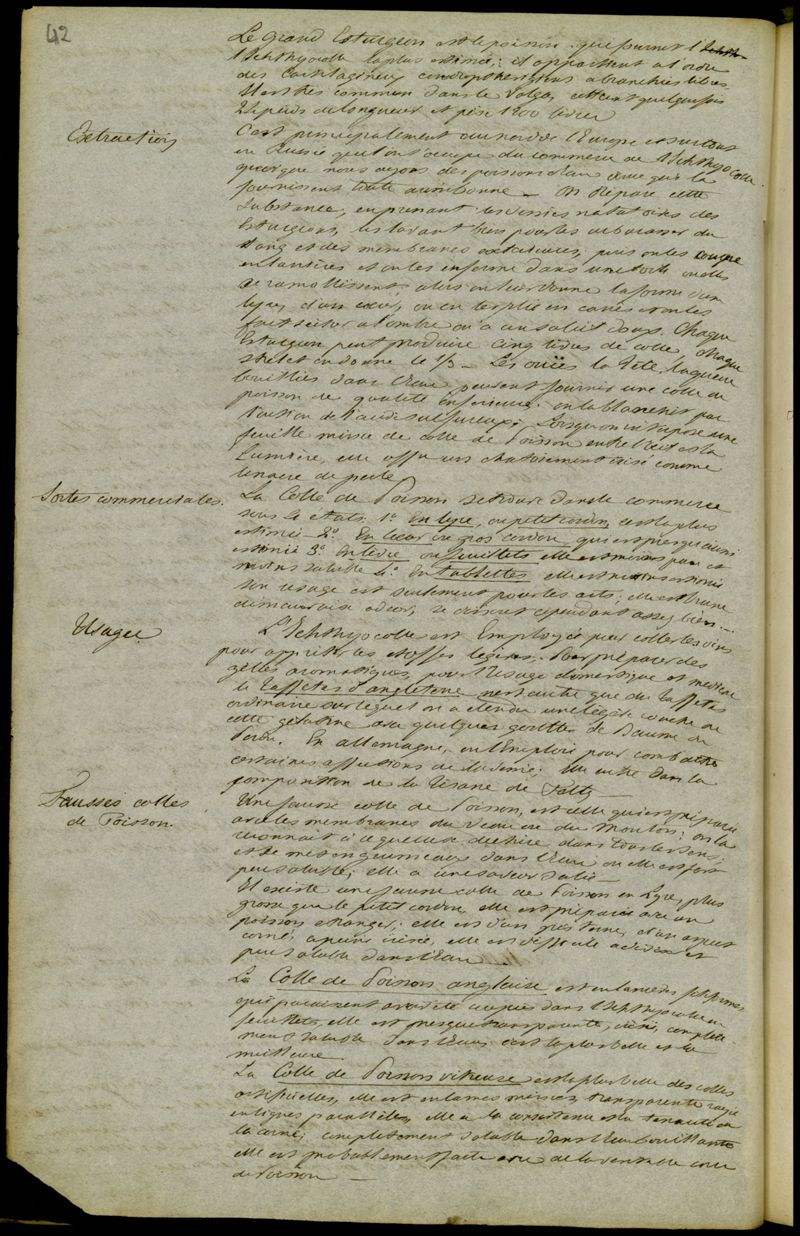 42
Le grand Esturgeon est le poisson qui fournit l'
l'Ichthyocolle la plus estimée; il appartient à l'ordre
des Cartilagineux à branchies libres.
Il est très commun dans le Volga, atteint quelquefois
24 pieds de longueur et pèse 1200 livres
Extraction
C'est principalement au nord de l'Europe et surtout
en Russie que l'on s'occupe du commerce de l'Ichthyocolle
quoique nous ayons des poissons d'eau douce qui la
fournissent toute aussi bonne. On Prépare cette
Substance, en prenant les vessies natatoires des
Esturgeons, les lavant bien pour les débarasser du
sang et des membranes extérieures, puis on les coupe
en lanières et on les enferme dans une toile où elles
se ramollissent, alors on leur donne la forme d'une
lyre, d'un cœur, ou on les plie en carrés et on les
fait sécher à l'ombre ou à un soleil doux. Chaque
Esturgeon peut produire cinq livres de colle, chaque
sterlet en donne le 1/3 – Les ouïes la Tête, la queue
bouillies dans l'eau peuvent fournir une colle de
poisson de qualité inférieure. on la blanchit par
l'action de l'acide sulfureux; Lorsqu'on interpose une
feuille mince de colle de Poisson entre l'œil et la
Lumière, elle offre un chatoiement irisé comme
la nacre de perle
Sortes commerciales.
La Colle de Poisson se trouve dans le commerce
sous 4 états. 1° En lyre, ou petit cordon, c'est la plus
estimée – 2° En cœur ou gros cordon, qui est presque aussi
estimée 3° En livre ou feuillets elle est moins pure et
moins soluble 4° En tablettes elle est moins estimée
son usage est seulement pour les arts; elle est brune
de mauvaise odeur, se dissout cependant assez bien –
Usages
L'Ichthyocolle est Employée pour coller les vins
pour apprêter les étoffes légères. Pour préparer des
gelées aromatiques, pour l'Usage domestique et médical
le Taffetas d'angleterre n'est autre que du Taffetas
ordinaire sur lequel on a étendu une légère couche de
cette gélatine avec quelques gouttes de Baume du
Pérou. En allemagne, on l'Emploie pour combattre
certaines affections de la vessie; Elle entre dans la
composition de la Tisane de Feltz
Fausses colles
de Poisson.
Une fausse colle de Poisson, est celle qui est préparée
avec les membranes du Veau ou du Mouton; on la
reconnait à ce qu'elle se déchire dans tous les sens;
et se met en grumeaux dans l'eau où elle est fort
peu soluble; elle a une saveur salée
Il existe une fausse colle de Poisson en Lyre, plus
grosse que le petit cordon, elle est préparée avec un
poisson étranger; elle est d'un gris terne, d'un aspect
corné, à peine irisée, elle est difficile à diviser et
peu soluble dans l'eau –
La Colle de Poisson anglaise est en lanières filiformes
qui paraissent avoir été coupées dans l'Ichthyocolle en
feuillets, elle est presque transparente, irisée, complète-
ment soluble dans l'eau c'est la plus belle et la
meilleure.
La Colle de Poisson vitreuse est la plus belle des colles
artificielles, elle est en lames minces, transparente rayée
en lignes parallèles, elle a la consistance et la tenacité de
la corne; complètement soluble dans l'eau bouillante
elle est probablement faite avec de la véritable colle
de Poisson –